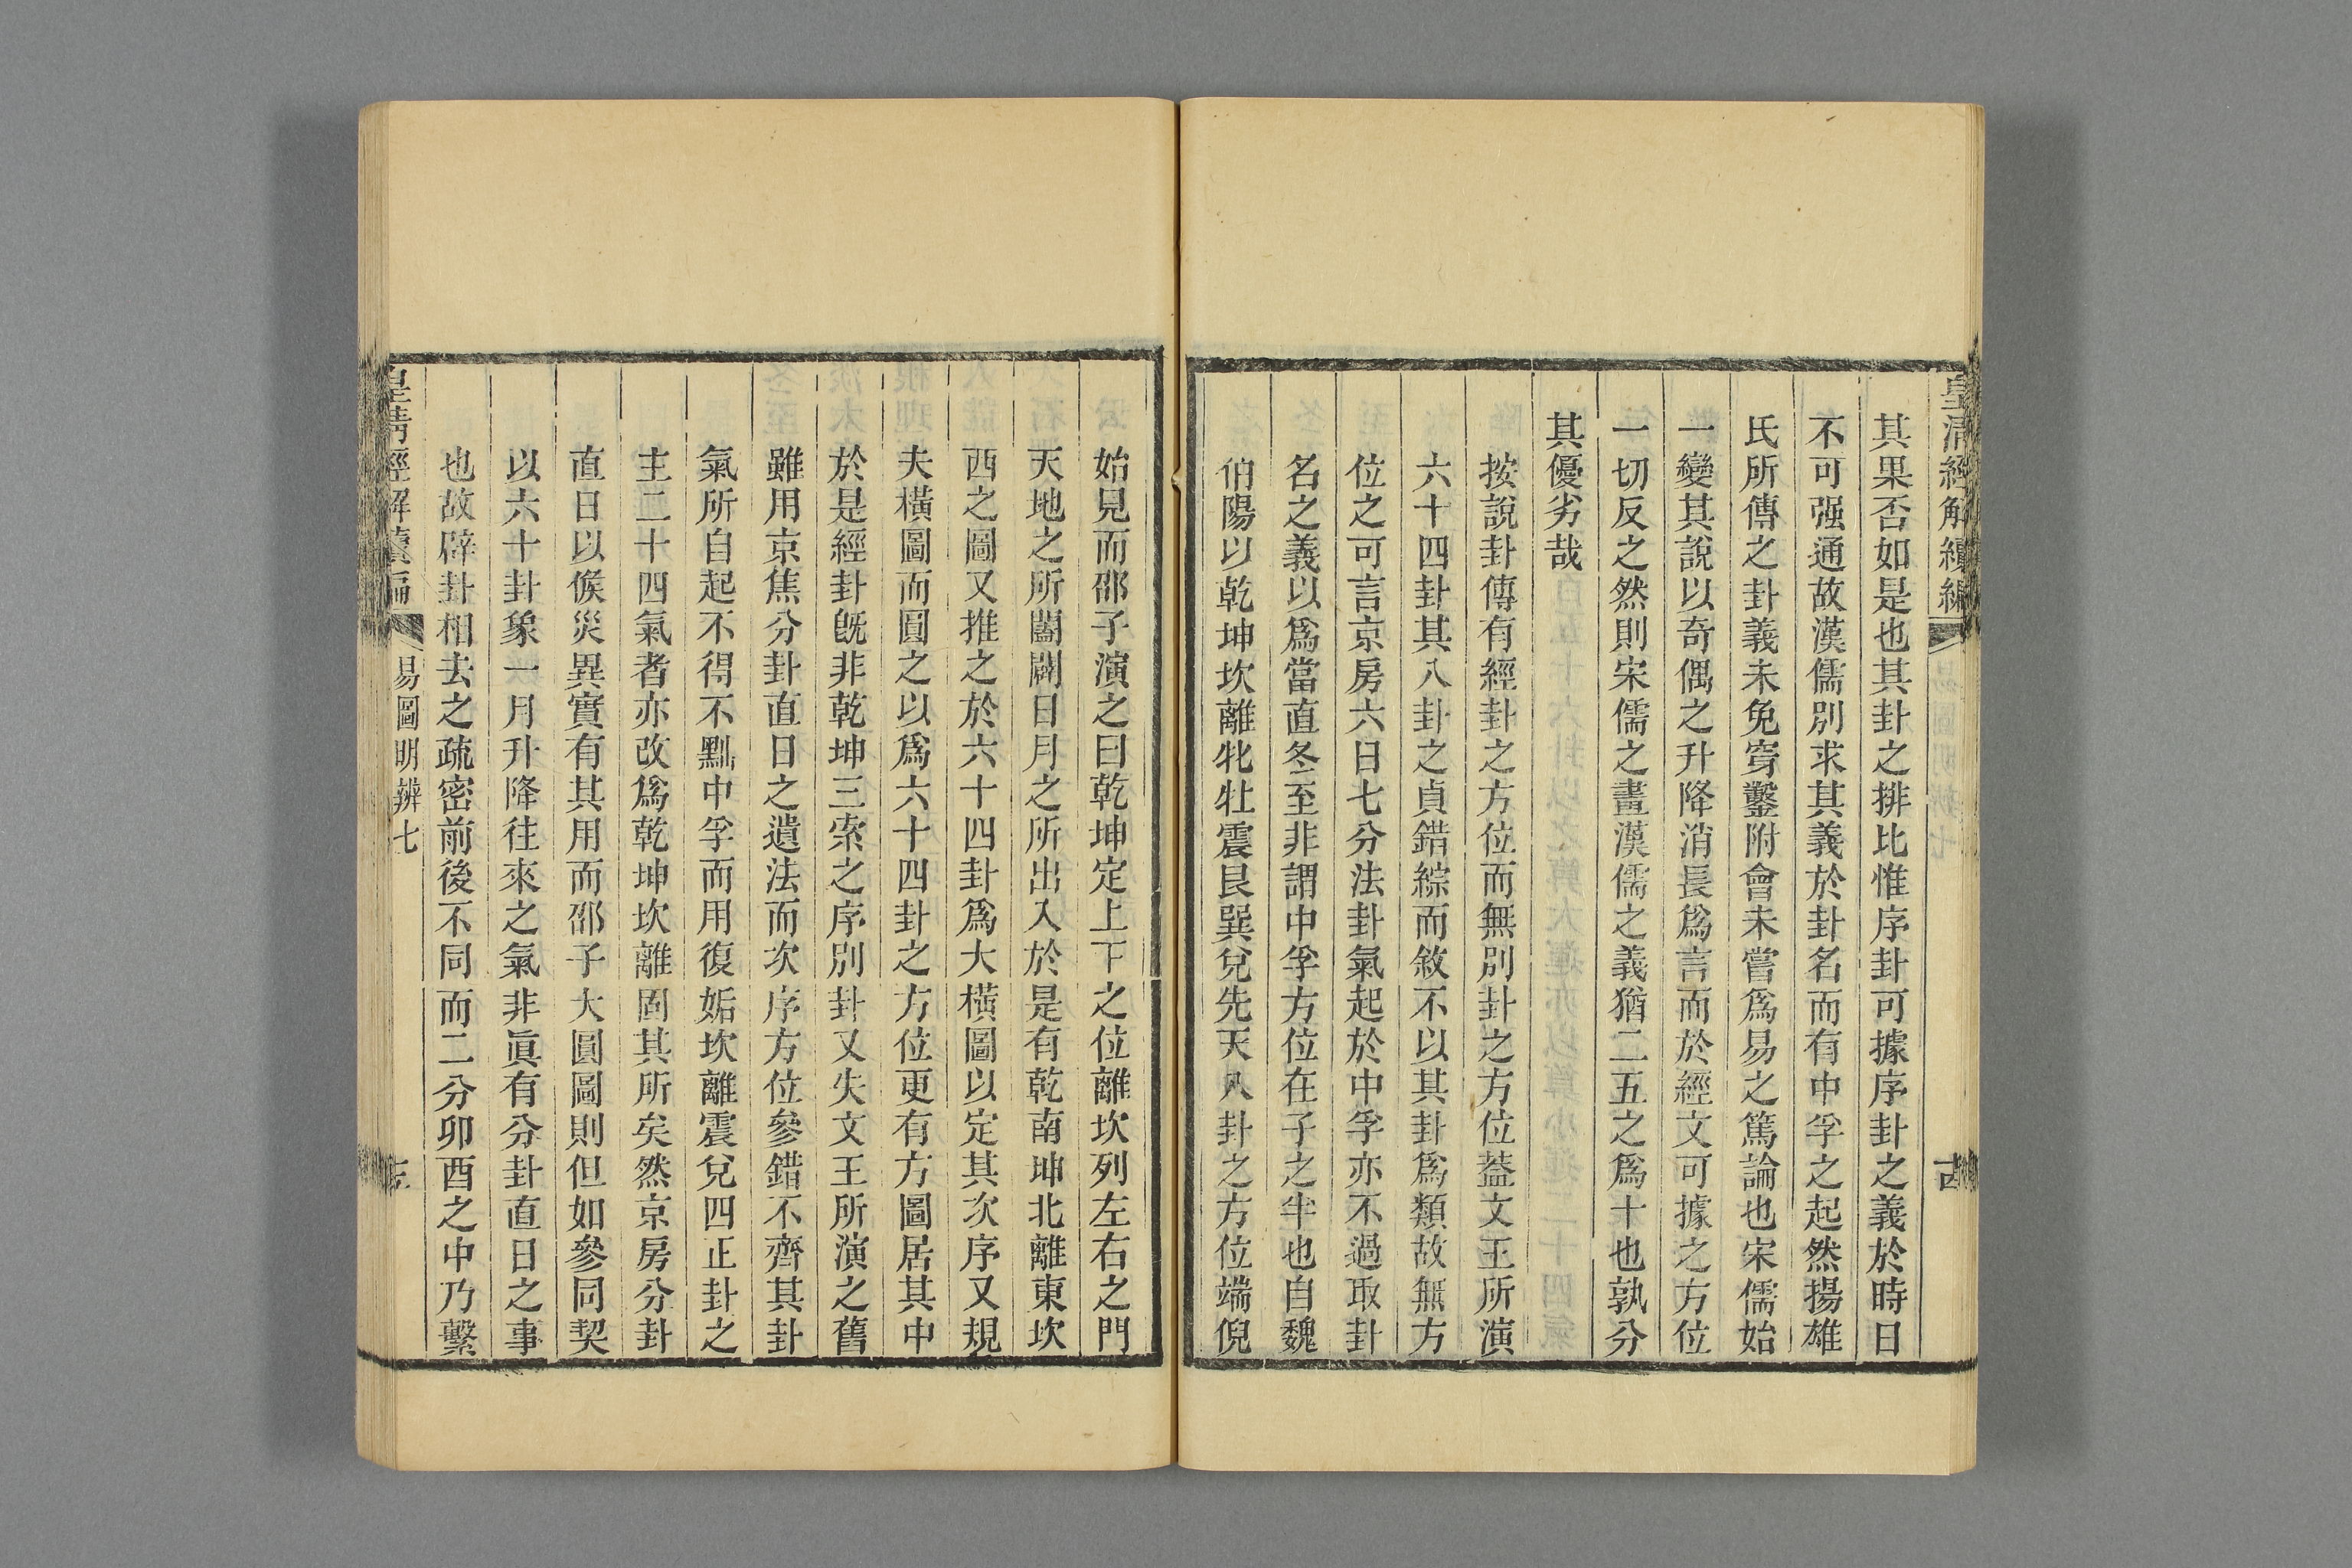 皇清經解續編
十四
其果否如是也其卦之排比惟序卦可據序卦之義於時日
不可强通故漢儒別求其義於卦名而有中孚之起然揚雄
氏所傳之卦義未免穿鑿附會未嘗爲易之篤論也宋儒始
一變其說以奇偶之升降消長爲言而於經文可據之方位
一切反之然則宋儒之畫漢儒之義猶二五之爲十也孰分
其優劣哉
按說卦傳有經卦之方位而無別卦之方位葢文王所演
六十四卦其八卦之貞錯綜而敘不以其卦爲類故無方
位之可言京房六日七分法卦氣起於中孚亦不過取卦
名之義以爲當直冬至非謂中孚方位在子之半也自魏
伯陽以乾坤坎離牝牡震艮巽兌先天八卦之方位端倪
始見而邵子演之曰乾坤定上下之位離坎列左右之門
天地之所闔闢日月之所出入於是有乾南坤北離東坎
西之圖又推之於六十四卦爲大橫圖以定其次序又規
夫橫圖而圓之以爲六十四卦之方位更有方圖居其中
於是經卦旣非乾坤三索之序別卦又失文王所演之舊
雖用京焦分卦直日之遺法而次序方位參錯不齊其卦
氣所自起不得不黜中孚而用復姤坎離震兌四正卦之
主二十四氣者亦改爲乾坤坎離固其所矣然京房分卦
直日以候災異實有其用而邵子大圓圖則但如參同契
以六十卦象一月升降往來之氣非眞有分卦直日之事
也故辟卦相去之疏密前後不同而二分卯酉之中乃繫
皇清經解續編
易圖明辨七